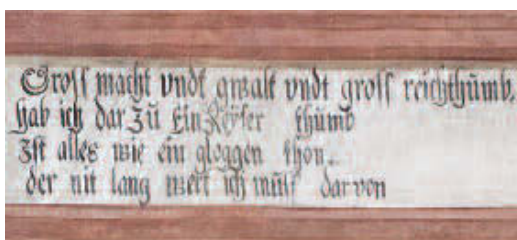 Gross macht vndt gwalt vndt gross reichthumb,
hab ich dar zu Ein Keyser thumb
Ist alles wie ein gloggen thon.
der nit lang wert ich muss dar von